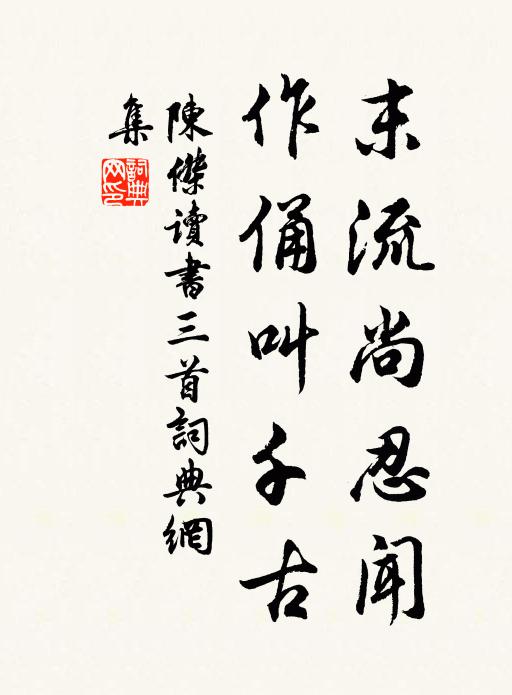 末流尚忍闻
作俑叫千古
陳傑讀書三首詞典網
集
詞典
网印